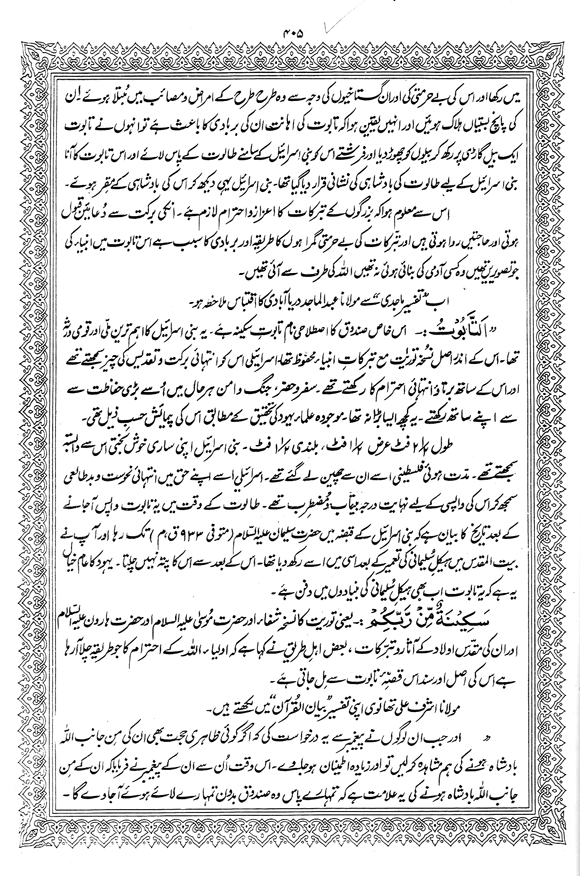 ۴۰۵
میں رکھا اور اس کی بے حرمتی کی اور ان گستاخیوں کی وجہ سے وہ طرح طرح کے امراض و مصائب میں مبتلا ہوئے! ان
کی پانچ بستیاں ہلاک ہوئیں اور انہیں یقین ہوا کہ تابوت کی اہانت ان کی بربادی کا باعث ہے تو انہوں نے تابوت
ایک بیل گاڑی پر رکھ کر بیلوں کو چھوڑ دیا اور فرشتے اس کو بنی اسرائیل کے سامنے طالوت کے پاس لائے اور اس تابوت کا آنا
بنی اسرائیل کے لیے طالوت کی بادشاہی کی نشانی قرار دیا گیا تھا۔ بنی اسرائیل یہی دیکھ کر اس کی بادشاہی کے مقر ہوئے۔
اس سے معلوم ہوا کہ بزرگوں کے تبرکات کا اعزاز و احترام لازم ہے۔ انکی برکت سے دعائیں قبول
ہوتی اور حاجتیں روا ہوتی ہیں اور تبرکات کی بے حرمتی گمراہوں کا طریقہ اور بربادی کا سبب ہے اس تابوت میں انبیاء کی
جو تصویریں تھیں وہ کسی آدمی کی بنائی ہوئی نہ تھیں اللہ کی طرف سے آئی تھیں۔
اب "تفسیر ماجدی" سے مولانا عبدالماجد دریا آبادی کا اقتباس ملاحظہ ہو۔
"اَلتَّابُوْتُ :۔ اس خاص صندوق کا اصطلاحی نام تابوت سکینہ ہے۔ یہ بنی اسرائیل کا اہم ترین ملی اور قومی ورثہ
تھا۔ اس کے اندر اصل نسخہ توریت مع تبرکات انبیاء محفوظ تھا۔ اسرائیلی اس کو انتہائی برکت و تقدیس کی چیز سمجھتے تھے
اور اس کے ساتھ برتاؤ انتہائی احترام کا رکھتے تھے۔ سفر و حضر، جنگ و امن ہر حال میں اُسے بڑی حفاظت سے
اپنے ساتھ رکھتے۔ یہ کچھ ایسا بڑا نہ تھا۔ موجودہ علماء یہود کی تحقیق کے مطابق اس کی پیمائش حسب ذیل تھی۔
طول ½۲ فٹ عرض ½۱ فٹ، بلندی ½۱ فٹ۔ بنی اسرائیل اپنی ساری خوش بختی اس سے وابستہ
سمجھتے تھے۔ مدت ہوئی فلسطینی اسے ان سے چھین لے گئے تھے۔ اسرائیلی اسے اپنے حق میں انتہائی نحوست و بدطالعی
سمجھ کر اس کی واپسی کے لیے نہایت درجہ بیتاب و مضطرب تھے۔ طالوت کے وقت میں یہ تابوت واپس آجانے
کے بعد تاریخ کا بیان ہے کہ بنی اسرائیل کے قبضہ میں حضرت سلیمان علیہ السلام (متوفی ۹۳۳ ق م) تک رہا اور آپ نے
بیت المقدس میں ہیکل سلیمانی کی تعمیر کے بعد اسی میں اسے رکھ دیا تھا۔ اس کے بعد سے اس کا پتہ نہیں چلتا۔ یہود کا عام خیال
یہ ہے کہ یہ تابوت اب بھی ہیکل سلیمانی کی بنیادوں میں دفن ہے۔
سَكِيْنَةٌ مِّنْ رَّبِّكُمْ :۔ یعنی توریت کا نسخہ شفاء اور حضرت موسیٰ علیہ السلام اور حضرت ہارون علیہ السلام
اور ان کی مقدس اولاد کے آثار و تبرکات، بعض اہل طریق نے کہا ہے کہ اولیاء اللہ کے احترام کا جو طریقہ چلا آرہا
ہے اس کی اصل اور سند اس قصۂ تابوت سے مل جاتی ہے۔
مولانا اشرف علی تھانوی اپنی تفسیر "بیان القرآن" میں لکھتے ہیں۔
" اور جب ان لوگوں نے پیغمبر سے یہ درخواست کی کہ اگر کوئی ظاہری حجت بھی ان کی من جانب اللہ
بادشاہ ہونے کی ہم مشاہدہ کر لیں تو اور زیادہ اطمینان ہو جاوے۔ اس وقت اُن سے ان کے پیغمبر نے فرمایا کہ ان کے من
جانب اللہ بادشاہ ہونے کی یہ علامت ہے کہ تمہارے پاس وہ صندوق بدون تمہارے لائے ہوئے آجاوے گا۔